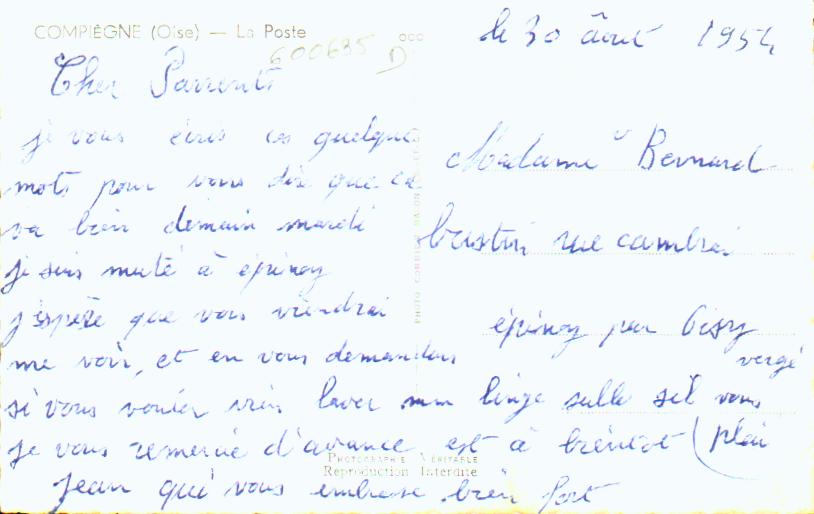 COMPIÈGNE (Oise) — La Poste
600635 D
le 30 âout 1954
Cher Parrents
je vous écris ces quelque
mots pour vous dire que ca
va bien demain mardi
je suis muté à épinoy
j'espère que vous viendrai
me voir, et en vous demandans
si vous voulier bien laver mon linge salle sil vous
plai
je vous remercie d'avance est à bientot
jean qui vous embrase bien fort
Madame Bernard
rue cambrai
épinoy par Oisy
vergé
PHOTOGRAPHIE VÉRITABLE
Reproduction Interdite